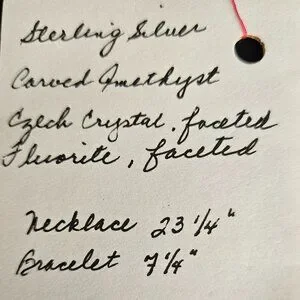 Sterling Silver
Carved Amethyst
Czech Crystal, faceted
Fluorite, faceted
Necklace 23 1/4"
Bracelet 7 1/4"